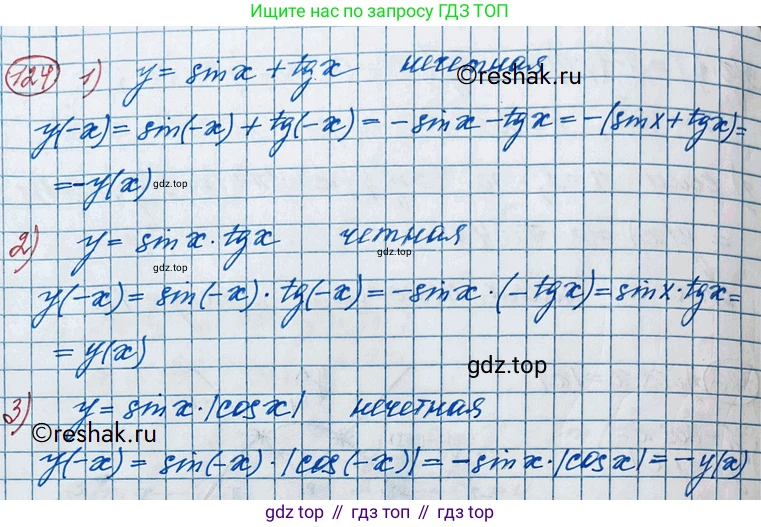 Ищите нас по запросу ГДЗ ТОП
124 1) y = sin x + tg x нечетная
©reshak.ru
y(-x) = sin(-x) + tg(-x) = -sin x - tg x = -(sin x + tg x) =
= -y(x) gdz.top
2) y = sin x · tg x четная
gdz.top gdz.top
y(-x) = sin(-x) · tg(-x) = -sin x · (-tg x) = sin x · tg x =
= y(x)
gdz.top
3) y = sin x · |cos x| нечетная
©reshak.ru
y(-x) = sin(-x) · |cos(-x)| = -sin x · |cos x| = -y(x)
gdz.top // гдз.top // гдз.топ